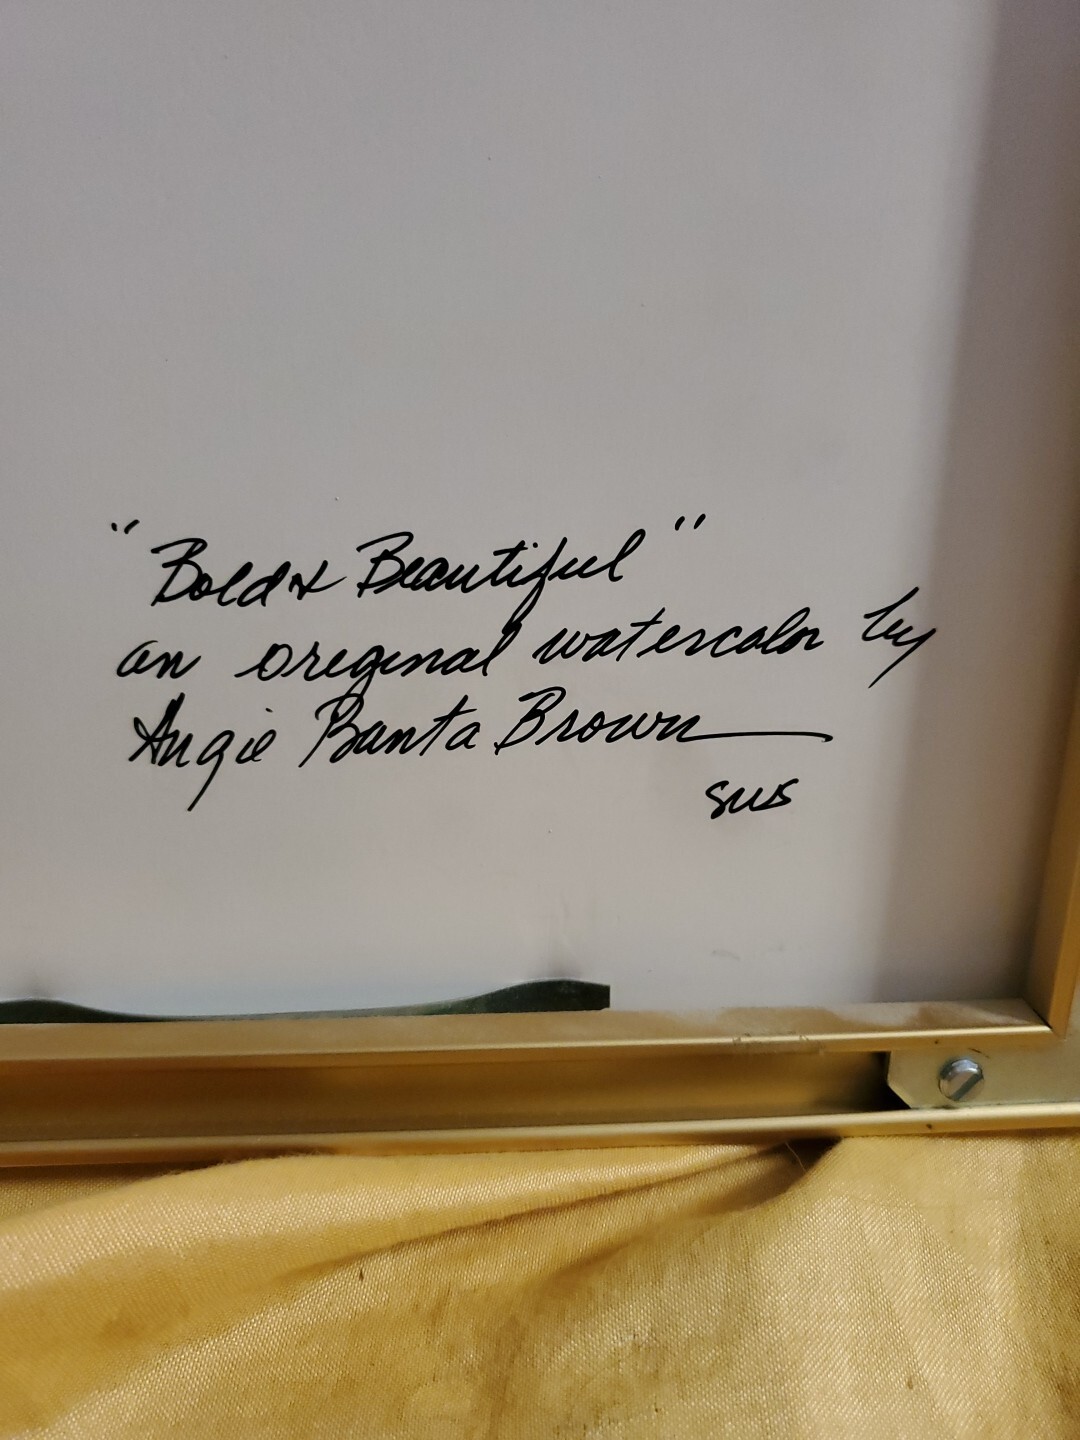 "Bold & Beautiful"
an original watercolor by
Angie Banta Brown
sws